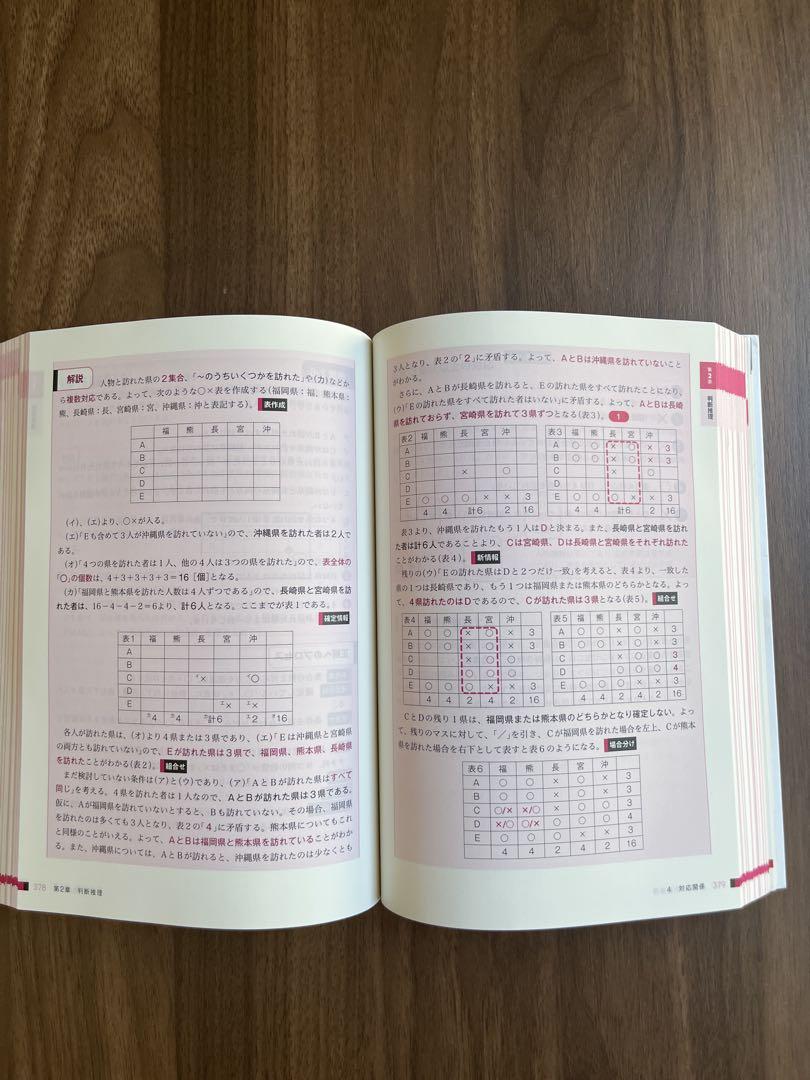 解説
人物と訪れた県の2集合、「〜のうちいくつかを訪れた」や(カ)などか
ら複数対応である。よって、次のような○×表を作成する(福岡県：福、熊本県：
熊、長崎県：長、宮崎県：宮、沖縄県：沖と表記する)。 表作成
福 熊 長 宮 沖
A
B
C
D
E
(イ)、(エ)より、○×が入る。
(エ)「Eも含めて3人が沖縄県を訪れていない」ので、沖縄県を訪れた者は2人で
ある。
(オ)「4つの県を訪れた者は1人、他の4人は3つの県を訪れた」ので、表全体の
「○」の個数は、4+3+3+3+3=16〔個〕となる。
(カ)「福岡県と熊本県を訪れた人数は4人ずつである」ので、長崎県と宮崎県を訪
れた者は、16－4－4－2＝6より、計6人となる。ここまでが表1である。
確定情報
表1 福 熊 長 宮 沖
A
B
C × ○
D
E × ×
4 4 計6 2 16
各人が訪れた県は、(オ)より4県または3県であり、(エ)「Eは沖縄県と宮崎県
の両方とも訪れていない」ので、Eが訪れた県は3県で、福岡県、熊本県、長崎県
を訪れたことがわかる(表2)。 組合せ
まだ検討していない条件は(ア)と(ウ)であり、(ア)「AとBが訪れた県はすべて
同じ」を考える。4県を訪れた者は1人なので、AとBが訪れた県は3県である。
仮に、Aが福岡県を訪れていないとすると、Bも訪れていない。その場合、福岡県
を訪れたのは多くても3人となり、表2の「4」に矛盾する。熊本県についてもこれ
と同様のことがいえる。よって、AとBは福岡県と熊本県を訪れていることがわか
る。また、沖縄県については、AとBが訪れると、沖縄県を訪れたのは少なくとも
378 第2章 判断推理
3人となり、表2の「2」に矛盾する。よって、AとBは沖縄県を訪れていないこと
がわかる。
さらに、AとBが長崎県を訪れると、Eの訪れた県をすべて訪れたことになり、
(ウ)「Eの訪れた県をすべて訪れた者はいない」に矛盾する。よって、AとBは長崎
県を訪れておらず、宮崎県を訪れて3県ずつとなる(表3)。 1
表2 福 熊 長 宮 沖
A
B
C × ○
D
E ○ ○ ○ × × 3
4 4 計6 2 16
表3 福 熊 長 宮 沖
A ○ ○ × ○ × 3
B ○ ○ × ○ × 3
C × ○
D
E ○ ○ ○ × × 3
4 4 計6 2 16
表3より、沖縄県を訪れたもう1人はDと決まる。また、長崎県と宮崎県を訪れ
た者は計6人であることより、Cは宮崎県、Dは長崎県と宮崎県をそれぞれ訪れた
ことがわかる(表4)。 新情報
残りの(ウ)「Eの訪れた県はDと2つだけ一致」を考えると、表4より、一致した
県の1つは長崎県であり、もう1つは福岡県または熊本県のどちらかとなる。よっ
て、4県訪れたのはDであるので、Cが訪れた県は3県となる(表5)。 組合せ
表4 福 熊 長 宮 沖
A ○ ○ × ○ × 3
B ○ ○ × ○ × 3
C × ○ ○
D ○ ○ ○
E ○ ○ ○ × × 3
4 4 2 4 2 16
表5 福 熊 長 宮 沖
A ○ ○ × ○ × 3
B ○ ○ × ○ × 3
C × ○ ○ 3
D ○ ○ ○ 4
E ○ ○ ○ × × 3
4 4 2 4 2 16
CとDの残り1県は、福岡県または熊本県のどちらかとなり確定しない。よっ
て、残りのマスに対して、「／」を引き、Cが福岡県を訪れた場合を左上、Cが熊本
県を訪れた場合を右下として表すと表6のようになる。 場合分け
表6 福 熊 長 宮 沖
A ○ ○ × ○ × 3
B ○ ○ × ○ × 3
C ○/× ×/○ × ○ ○ 3
D ×/○ ○/× ○ ○ ○ 4
E ○ ○ ○ × × 3
4 4 2 4 2 16
4 対応関係 379
第2章
判断推理